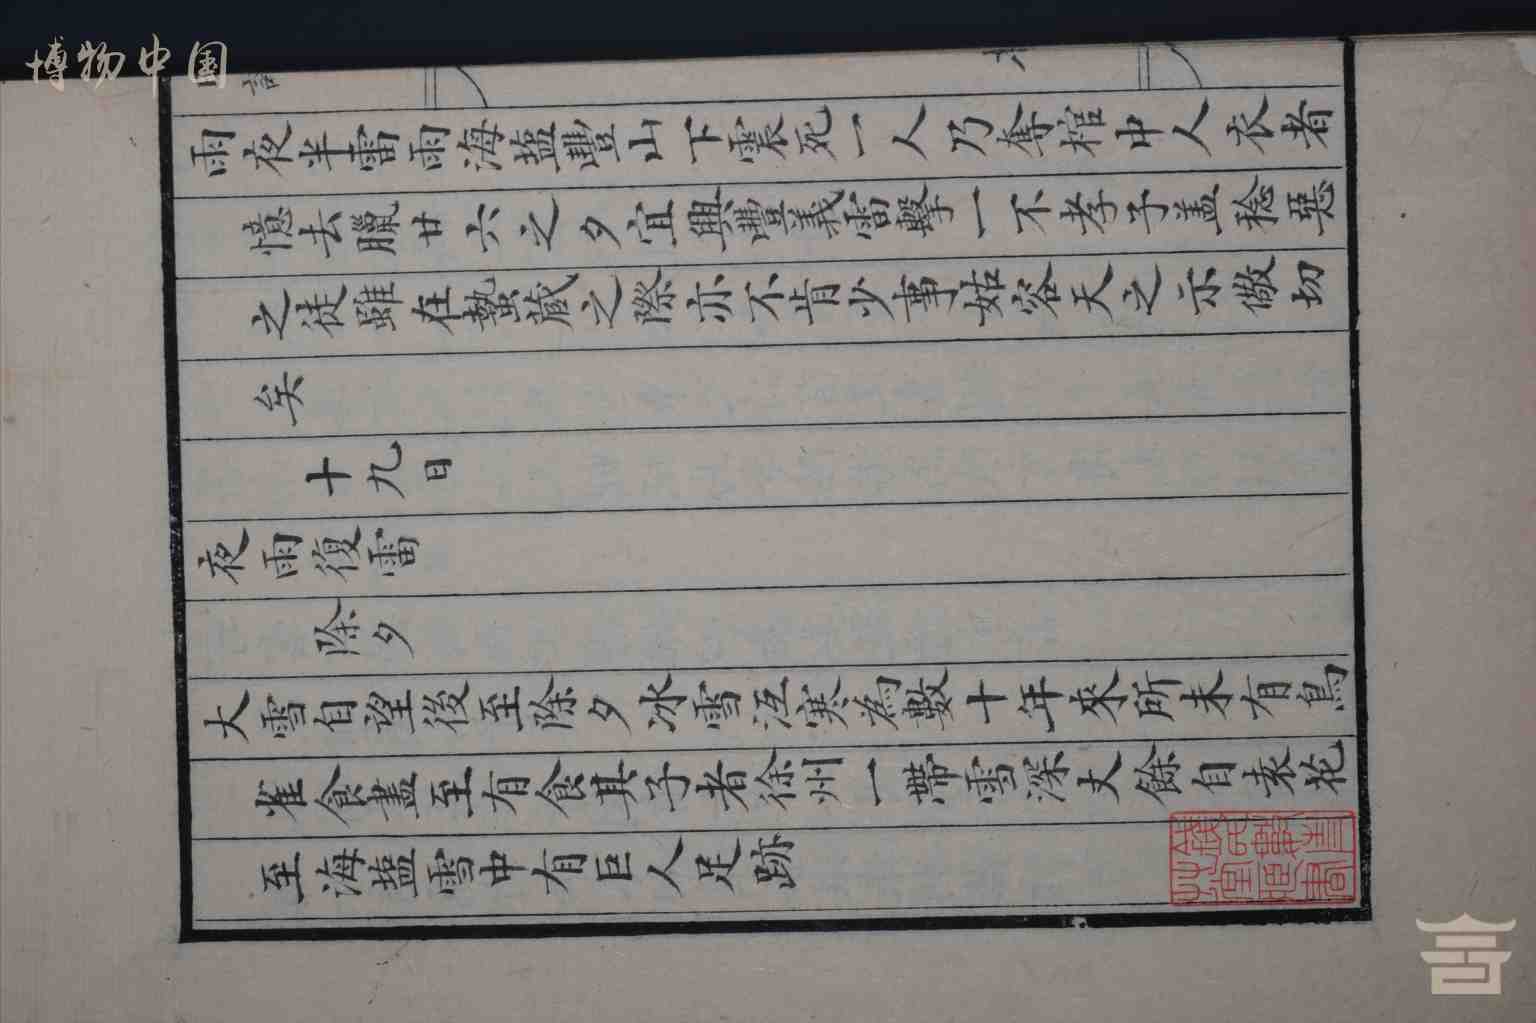 博物中国
雨夜半雷雨海盐豐山下震死一人乃奪棺中人衣者
憶去臘廿六之夕宜興豐義雷擊一不孝子盖稔惡
之徒雖在蟄藏之際亦不肯少事姑容天之示儆切
矣
十九日
夜雨復雷
除夕
大雪自望後至除夕冰雪沍寒為數十年來所未有鳥
雀食盡至有食其子者徐州一帶雪深丈餘自袁花
至海盐雪中有巨人足跡